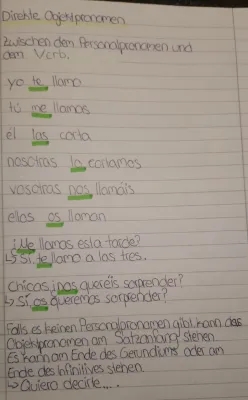 Direkte Objektpronomen
Zwischen dem Personalpronomen und
dem Verb.
yo te llamo
tú me llamas
él las corta
nosotras la cortamos
vosotras nos llamáis
ellas os llaman
¿Me llamas esta tarde?
↳ Sí, te llamo a las tres.
Chicos ¿nos queréis sorprender?
↳ Sí os queremos sorprender?
Falls es keinen Personalpronomen gibt, kann das
Objektpronomen am Satzanfang stehen.
Es kann am Ende des Gerundiums oder am
Ende des Infinitives stehen.
↳ Quiero decirte....